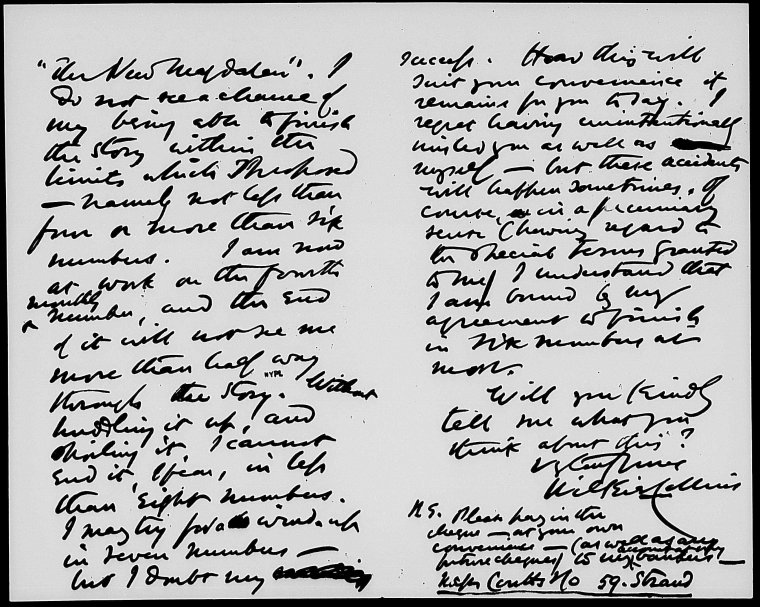 "The New Magdalen". I
do not see a chance of
my being able to finish
the story within the
limits which I proposed
— namely not less than
four or more than six
numbers. I am now
at work on the fourth
monthly
number, and the end
of it will not see me
more than half way
through the story. Without
huddling it up, and
spoiling it, I cannot
end it, I fear, in less
than eight numbers.
I may try for a wind-up
in seven numbers —
but I doubt my
success. How this will
suit your convenience it
remains for you to say. I
regret having unintentionally
misled you as well as
myself — but these accidents
will happen sometimes. Of
course, in a pecuniary
sense (having regard to
the special terms granted
to me) I understand that
I am bound by my
agreement to finish
in six numbers at
most.
Will you kindly
tell me what you
think about this?
Wilkie Collins
P.S. Please pay in the
cheque — at your own
convenience — (as well as any
future cheques) to my bankers —
Messrs Coutts & Co 59. Strand